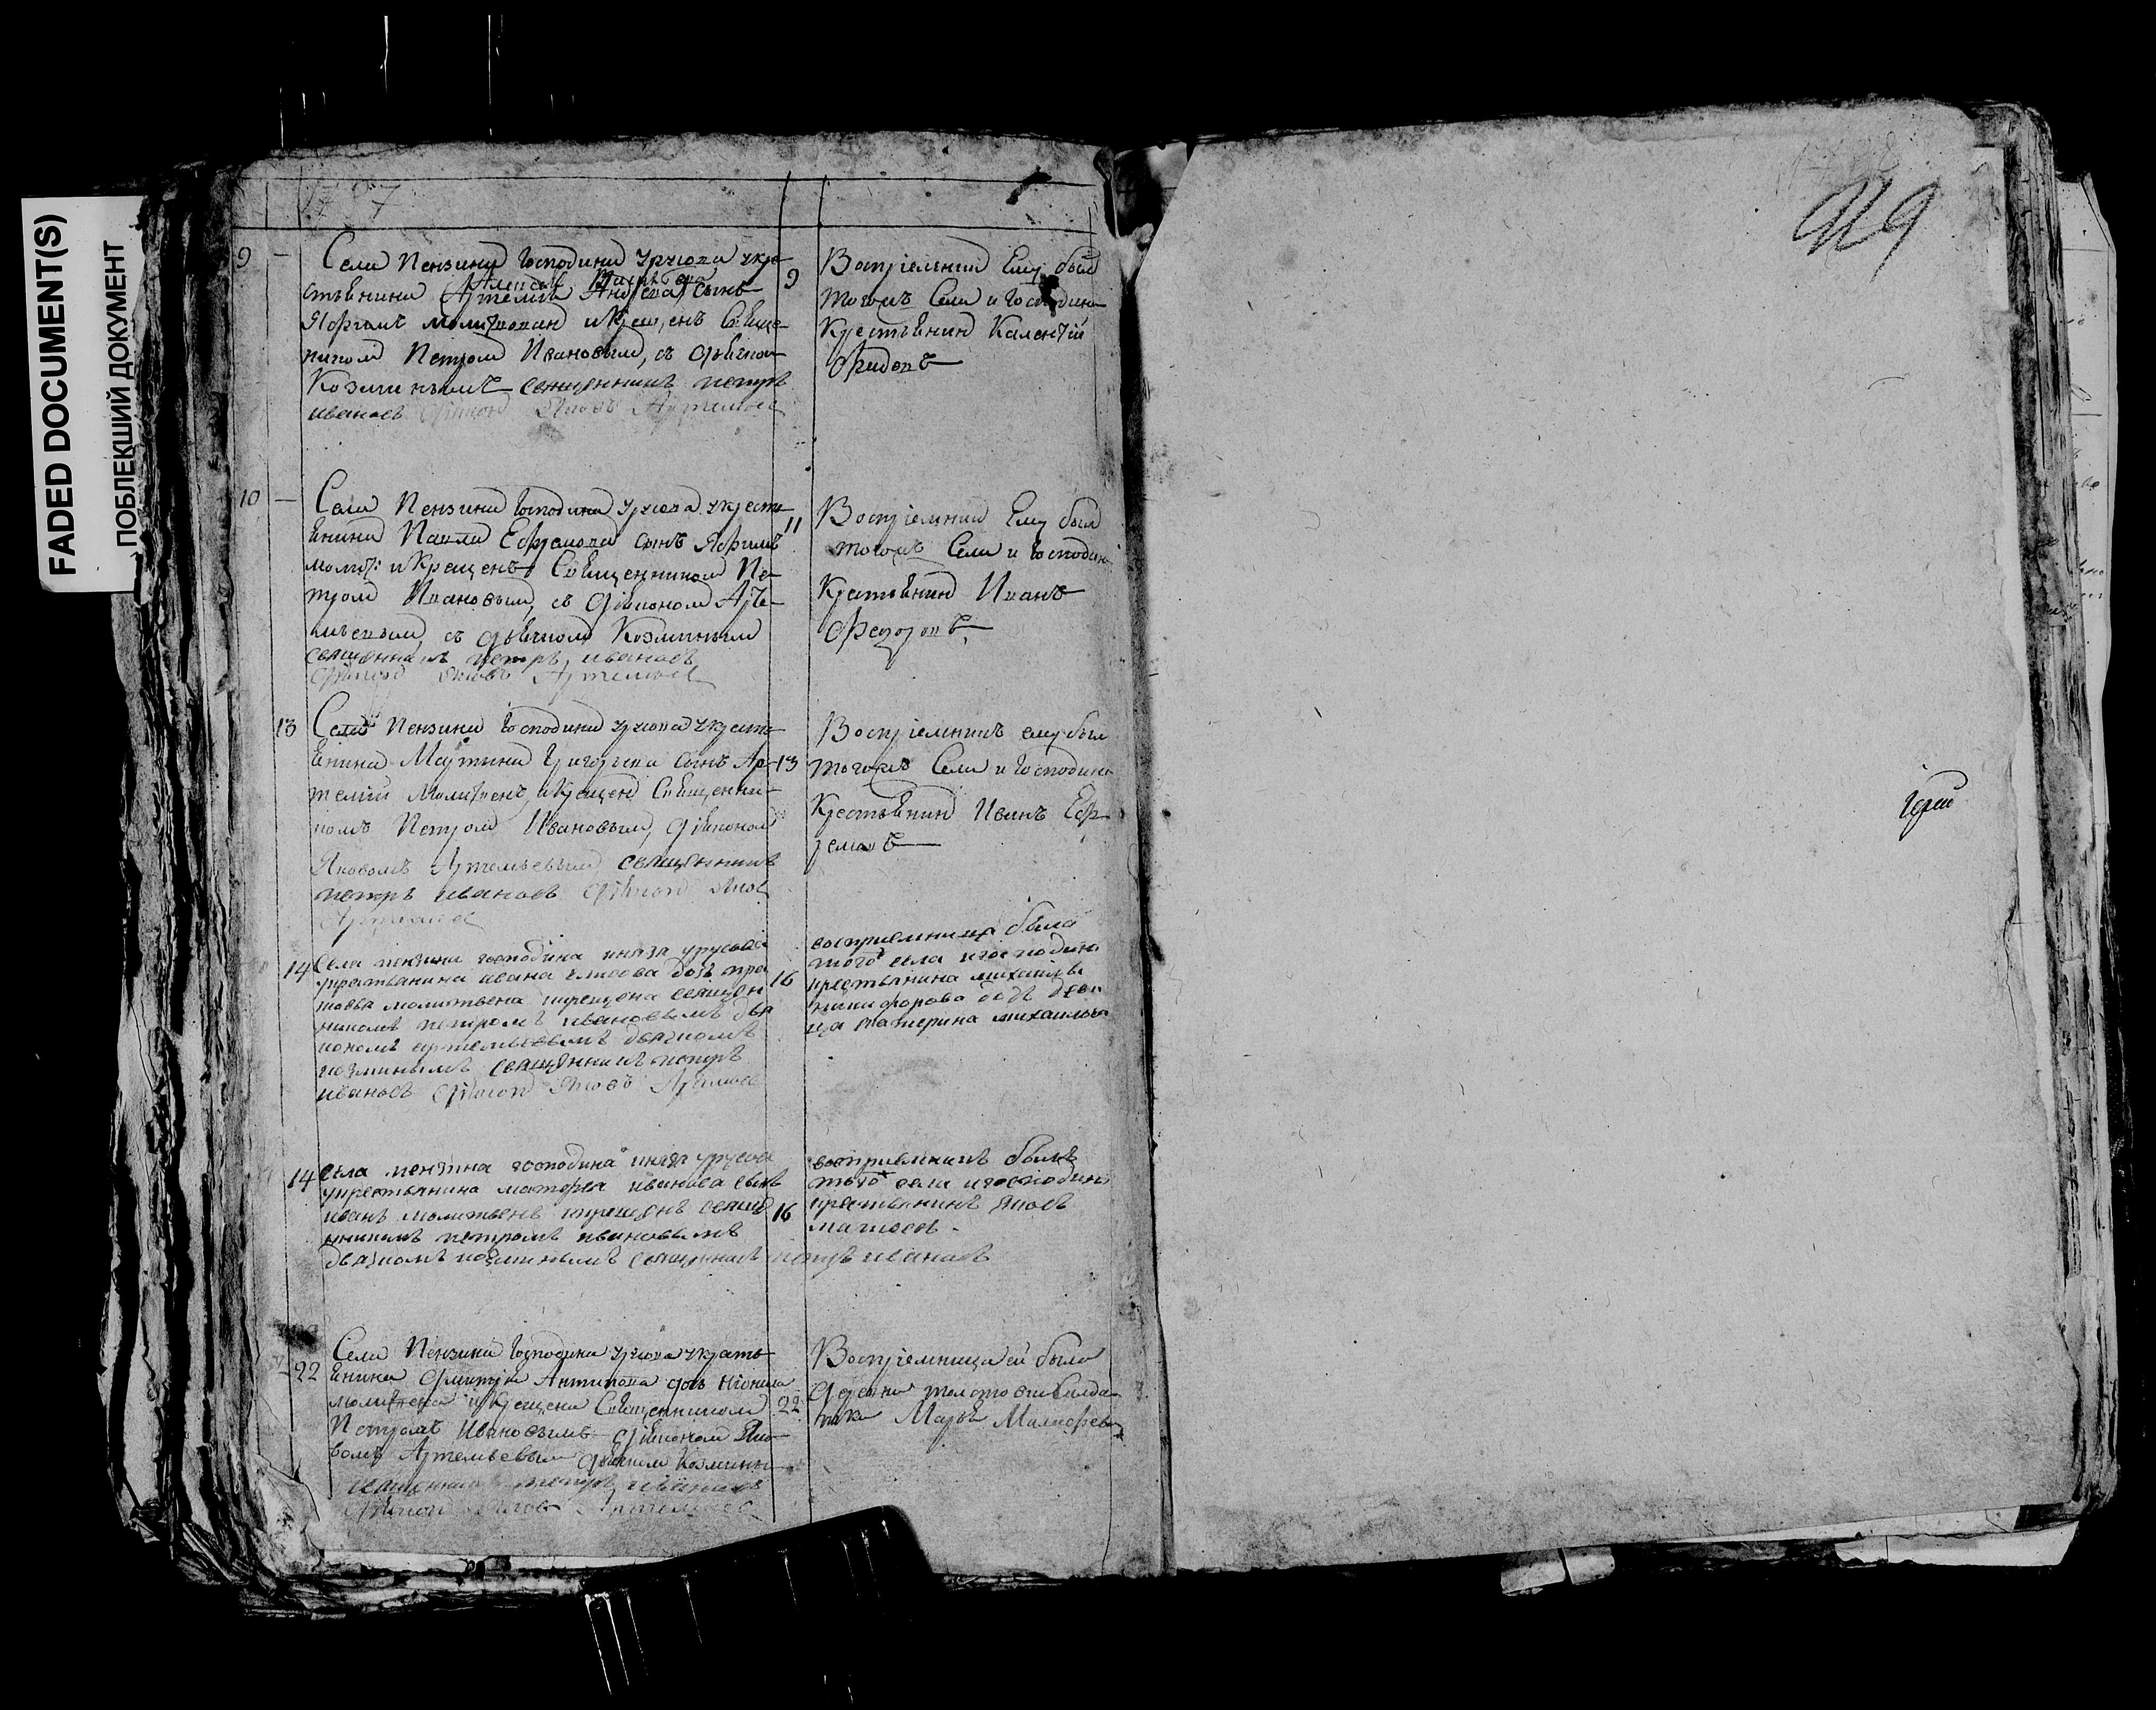 FADED DOCUMENT(S)
ПОБЛЕКШИЙ ДОКУМЕНТ
1797
9 — Села Пензина Господина Урусова укре-
стьянина Артемья Андреева сынъ
Ефремъ молитвован и крещенъ Свяще-
ником Петром Ивановым, съ дьячком
Козминымъ священникъ петръ
иванаовъ Дiякон Яковъ Артемьев
9
Воспрiемник Ему был
тогожъ Села и Господина
Крестьянин Калентiй
10 — Села Пензина Господина Урусова укресть-
янина Павла Ефремова сынъ Ефремъ
молит: и Крещенъ Священником Пе-
тром Ивановым, съ дiяконом Арте-
мьевым, съ дьячком Козминым
священникъ петръ иванаовъ
Дiякон Яковъ Артемьев
11
Воспрiемник Ему был
тогожъ Села и Господина
Крестьянин Иванъ
Федоровъ
13 Села Пензина Господина Урусова укресть-
янина Мартина Григорьева Сынъ Ар-
темiй Молитвенъ, и Крещен Священни-
комъ Петром Ивановым, дiяконом
Яковомъ Артемьевым священникъ
петръ иванаовъ Дiякон Яков
Артемьев
13
Воспрiемникъ ему был
тогожъ Села и Господина
Крестьянин Иванъ Еф-
ремовъ
14 Села пензина господина князя урусова
укрестьянина ивана
молитвена икрещена священ
никомъ петромъ ивановымъ дья
кономъ артемьевымъ дьячкомъ
козминымъ священникъ петръ
иванаовъ Дiякон Яковъ Артемьев
16
восприемница была
того села игосподина
крестьянина михаилы
никифорова
катерина михаилова
14 села пензина господина князя урусова
укрестьянина матфея иванова сынъ
иванъ молитвенъ икрещенъ священ
никомъ петромъ ивановымъ
дьячкомъ козминымъ священникъ петръ иванаовъ
16
восприемникъ былъ
того села игосподина
крестьянинъ яковъ
22 Села Пензина Господина Урусова укресть-
янина Дмитрiя Антипова дочь
молитвена и крещена Священником
Петромъ Ивановымъ дiяконом Яко-
вомъ Артемьевым дьячком Козминым
священникъ петръ иванаовъ
Дiякон Яков Артемьев
22
Воспрiемница ей была
Марья
919